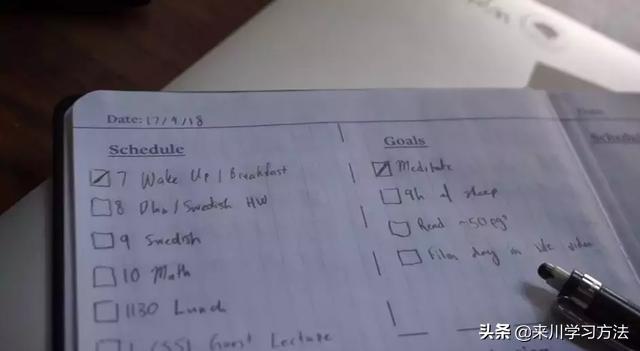 Date: 17/9/18
Schedule
7 Wake Up / Breakfast
8 / Swedish HW
9 Swedish
10 Math
1130 Lunch
1 CSSI Guest Lecture
Goals
Meditate
9h of sleep
Read ~50 pgs
Film day in life video
头条 @来川学习方法